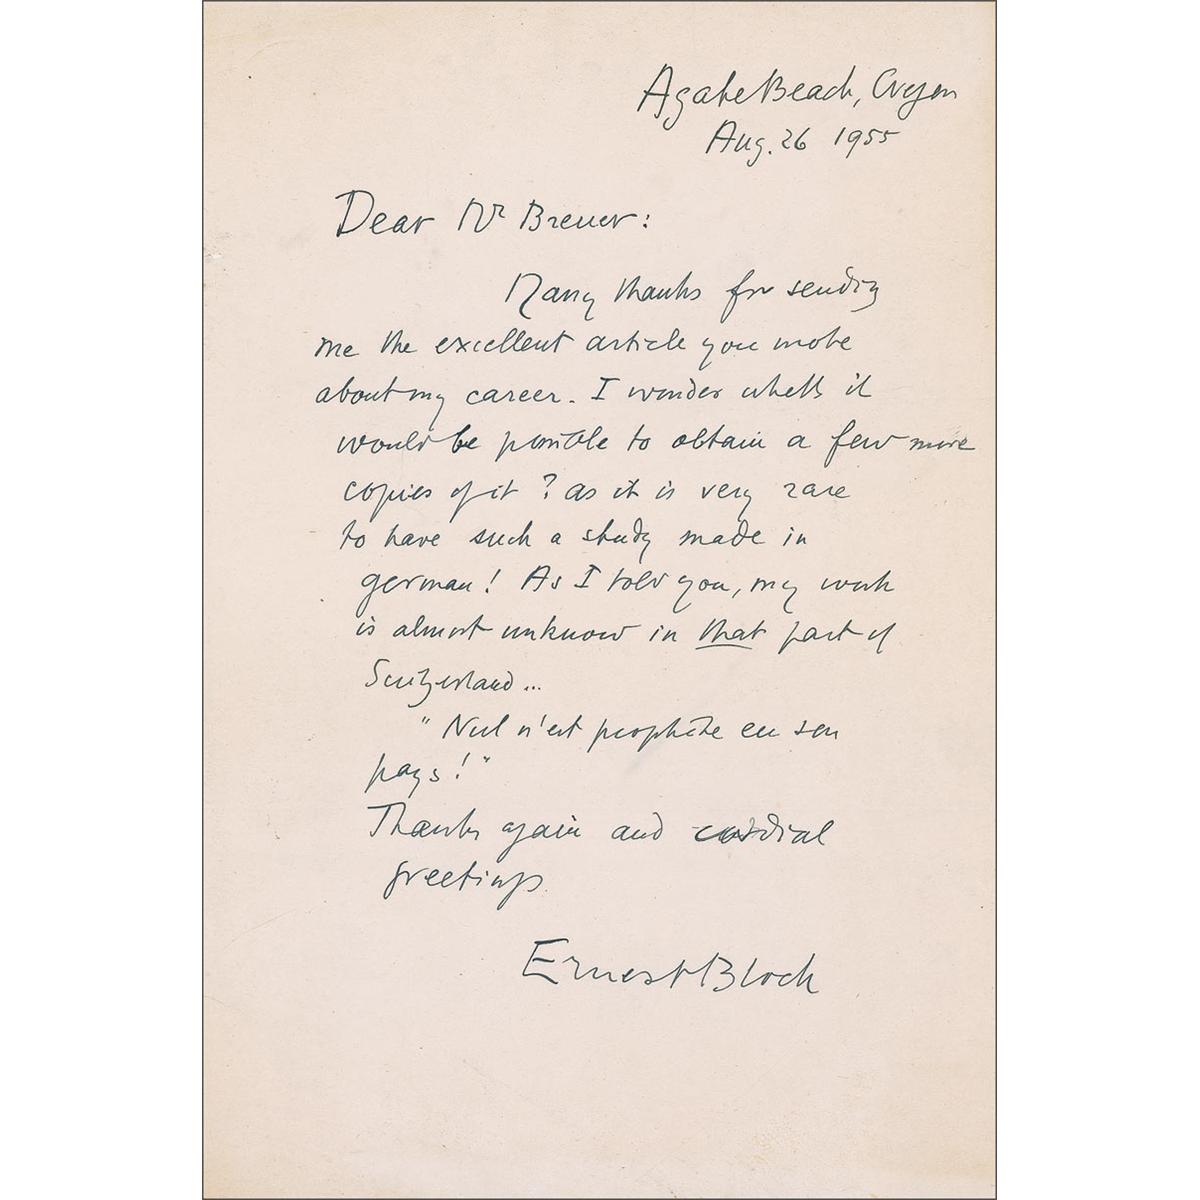 Agate Beach, Oregon
Aug. 26 1955
Dear Mr Breuer:
Many thanks for sending
me the excellent article you wrote
about my career. I wonder whether it
would be possible to obtain a few more
copies of it? as it is very rare
to have such a study made in
german! As I told you, my work
is almost unknown in that part of
Switzerland...
"Nul n'est prophète en son
pays!"
Thanks again and cordial
greetings
Ernest Bloch